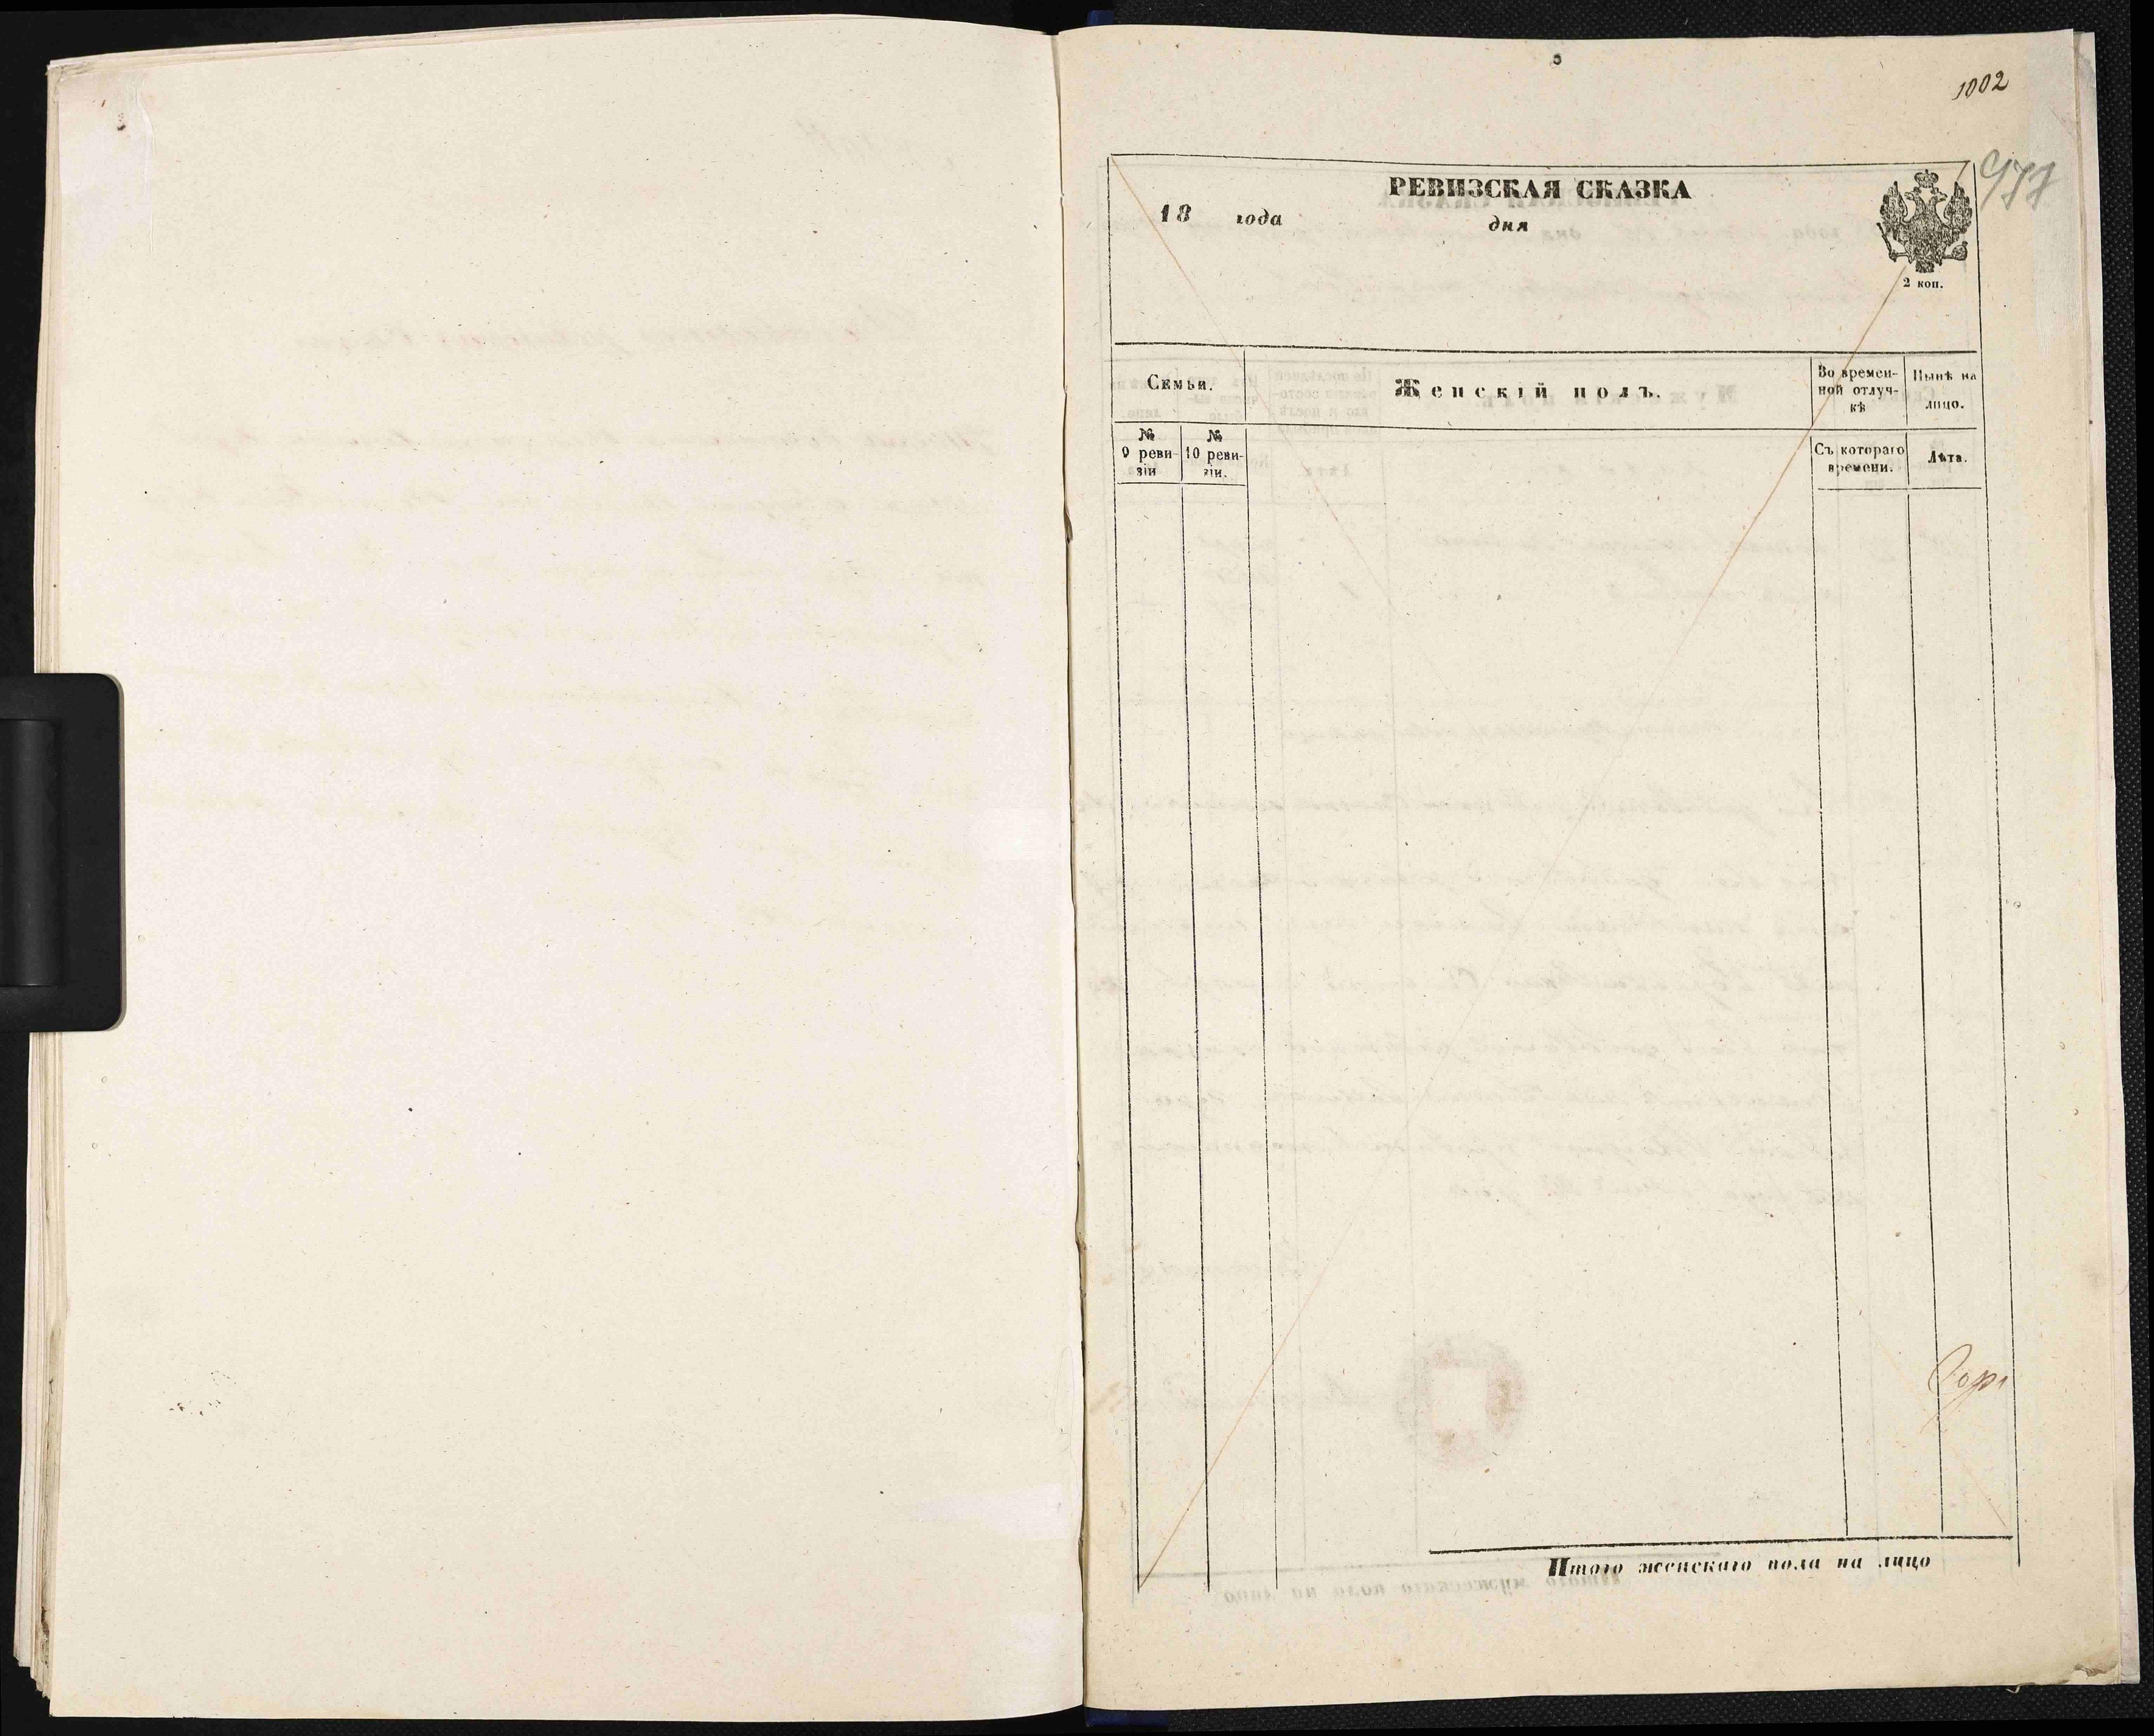 1002
977
РЕВИЗСКАЯ СКАЗКА
18 года дня
2 коп.
Семьи.
Женскій полъ.
Во времен-
ной отлуч-
кѣ
Нынѣ на
лицо.
№
9 реви-
зіи
№
10 реви-
зіи.
Съ котораго
времени.
Лѣта.
Итого женскаго пола на лицо